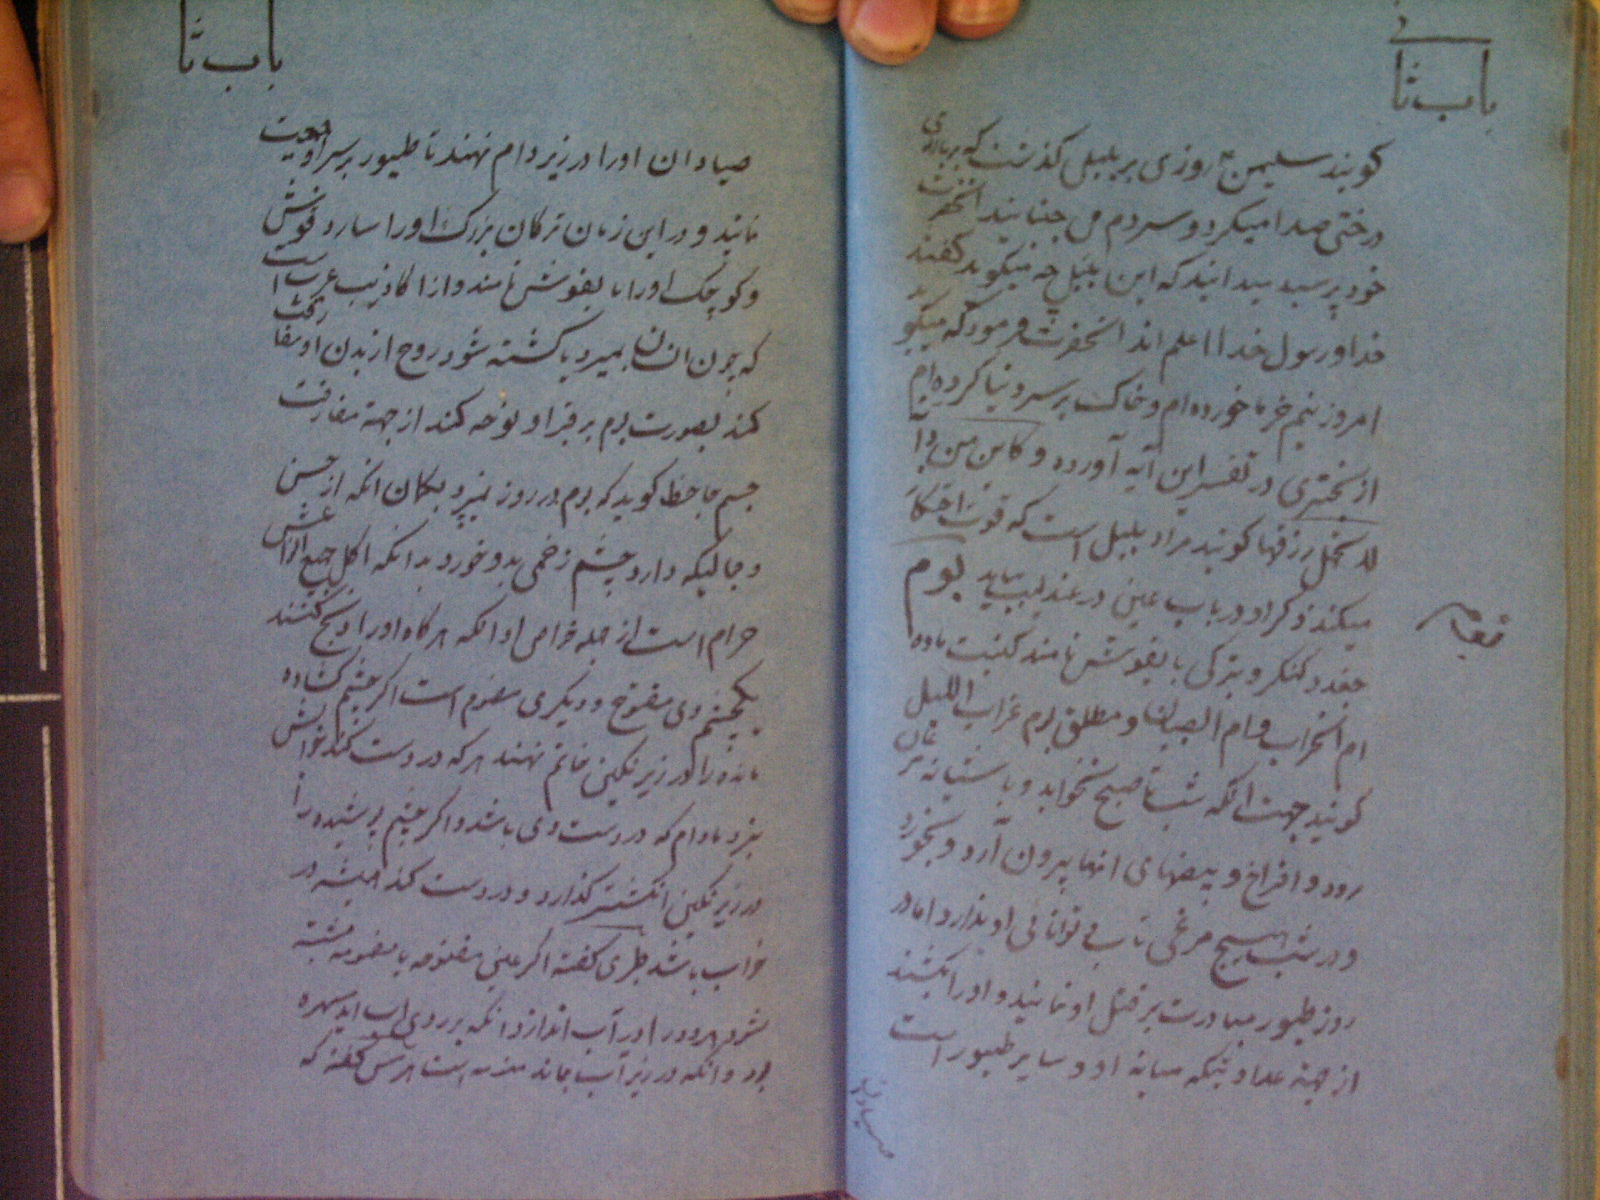 باب تا
گویند سلیمن ع روزی بر بلبل گذشت که بر بالای
درختی صدا میکرد و سر و دم می جنبانید آنحضرت
خود پرسید میدانید که این بلبل چه میگوید گفتند
خدا و رسول خدا اعلم اند آنحضرت فرمود که میگوید
امروز نیم خرما خورده ام و خاک بر سر دنیا کرده ام
در تفسیر این آیه آورده و کاین من دابه
لا تحمل رزقها گویند مراد بلبل است که قوت احتکار
میکند ذکر او در باب عین در عندلیب بیاید بوم
جغد و کنگر و بترکی بایقوش نامند کنیت ماده
ام الخراب و ام الصبیان و مطلق بوم غراب اللیل
گویند جهت آنکه شب تا صبح نخوابد و باشیانه مرغان
رود و افراخ و بیضهای آنها بیرون آرد و بخورد
و در شب هیچ مرغی تاب توانائی او ندارد اما در
روز طیور مبادرت بر قتل او نمایند و او را بکشند
از جهة عداوتیکه میانه او و سایر طیور است
صیادان
باب تا
صیادان او را در زیر دام نهند تا طیور بر سر او جمعیت
نمایند و در این زمان ترکان بزرگ او را ساروقوش
و کوچک او را بایقوش نامند و از اکاذیب عرب است
که چون انسان بمیرد یا کشته شود روح از بدن او مفارقت
کند بصورت بوم بر قبر او نوحه کند از جهة مفارقت
جسم جاحظ گوید که بوم در روز نپرد بگمان آنکه از حسن
و جمالیکه دارد چشم زخمی بدو خورد بدانکه اکل جمیع انواعش
حرام است از جمله خواص او آنکه هر گاه او را ذبح کنند
یکچشم وی مفتوح و دیگری مضموم است اگر چشم گشاده
مانده را در زیر نگین خاتم نهند هر که در دست کند خوابش
نبرد مادام که در دست وی باشد و اگر چشم پوشیده را
در زیر نگین انگشتر گذارد و در دست کند همیشه در
خواب باشد طبری گفته اگر عین مفتوحه با مضمومه مشتبه
شود هر دو را در آب اندازد آنکه بر روی آب آید سهره
بود و آنکه در زیر آب بماند منومه است هرمس گفته که